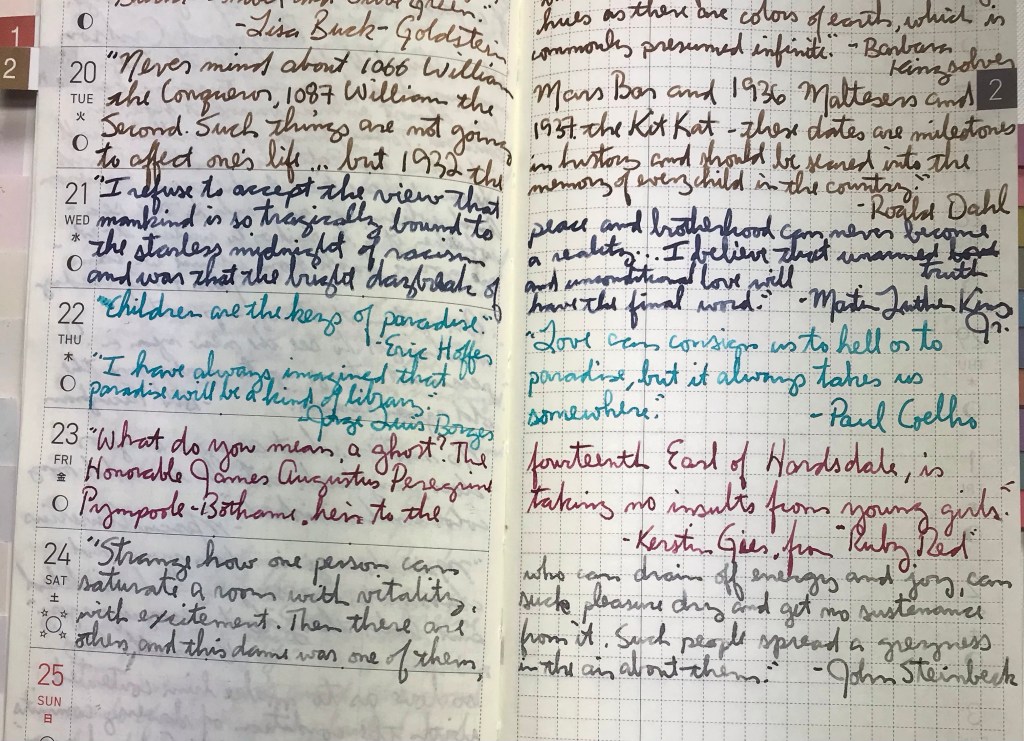 -Lisa Buck-Goldstein
1
2
20
TUE
火
"Never mind about 1066 William
the Conqueror, 1087 William the
Second. Such things are not going
to affect one's life... but 1932 the
21
WED
水
"I refuse to accept the view that
mankind is so tragically bound to
the starless midnight of racism
and war that the bright daybreak of
22
THU
木
"Children are the keys of paradise."
-Eric Hoffer
"I have always imagined that
paradise will be a kind of library."
-Jorge Luis Borges
23
FRI
金
"What do you mean, a ghost? The
Honorable James Augustus Peregrine
Pympoole-Bothame, heir to the
24
SAT
土
"Strange how one person can
saturate a room with vitality,
with excitement. Then there are
others, and this dame was one of them,
25
SUN
日
hues as there are colors of earth, which is
commonly presumed infinite." -Barbara
Kingsolver
2
Mars Bar and 1936 Maltesers and
1937 the Kit Kat - these dates are milestones
in history and should be seared into the
memory of every child in the country."
-Roald Dahl
peace and brotherhood can never become
a reality... I believe that unarmed
truth
and unconditional love will
have the final word." -Martin Luther King
Jr.
"Love can consign us to hell or to
paradise, but it always takes us
somewhere." -Paul Coelho
fourteenth Earl of Hardsdale, is
taking no insults from young girls."
-Kerstin Gier, from "Ruby Red"
who can drain off energy and joy, can
suck pleasure dry and get no sustenance
from it. Such people spread a greyness
in the air about them." -John Steinbeck